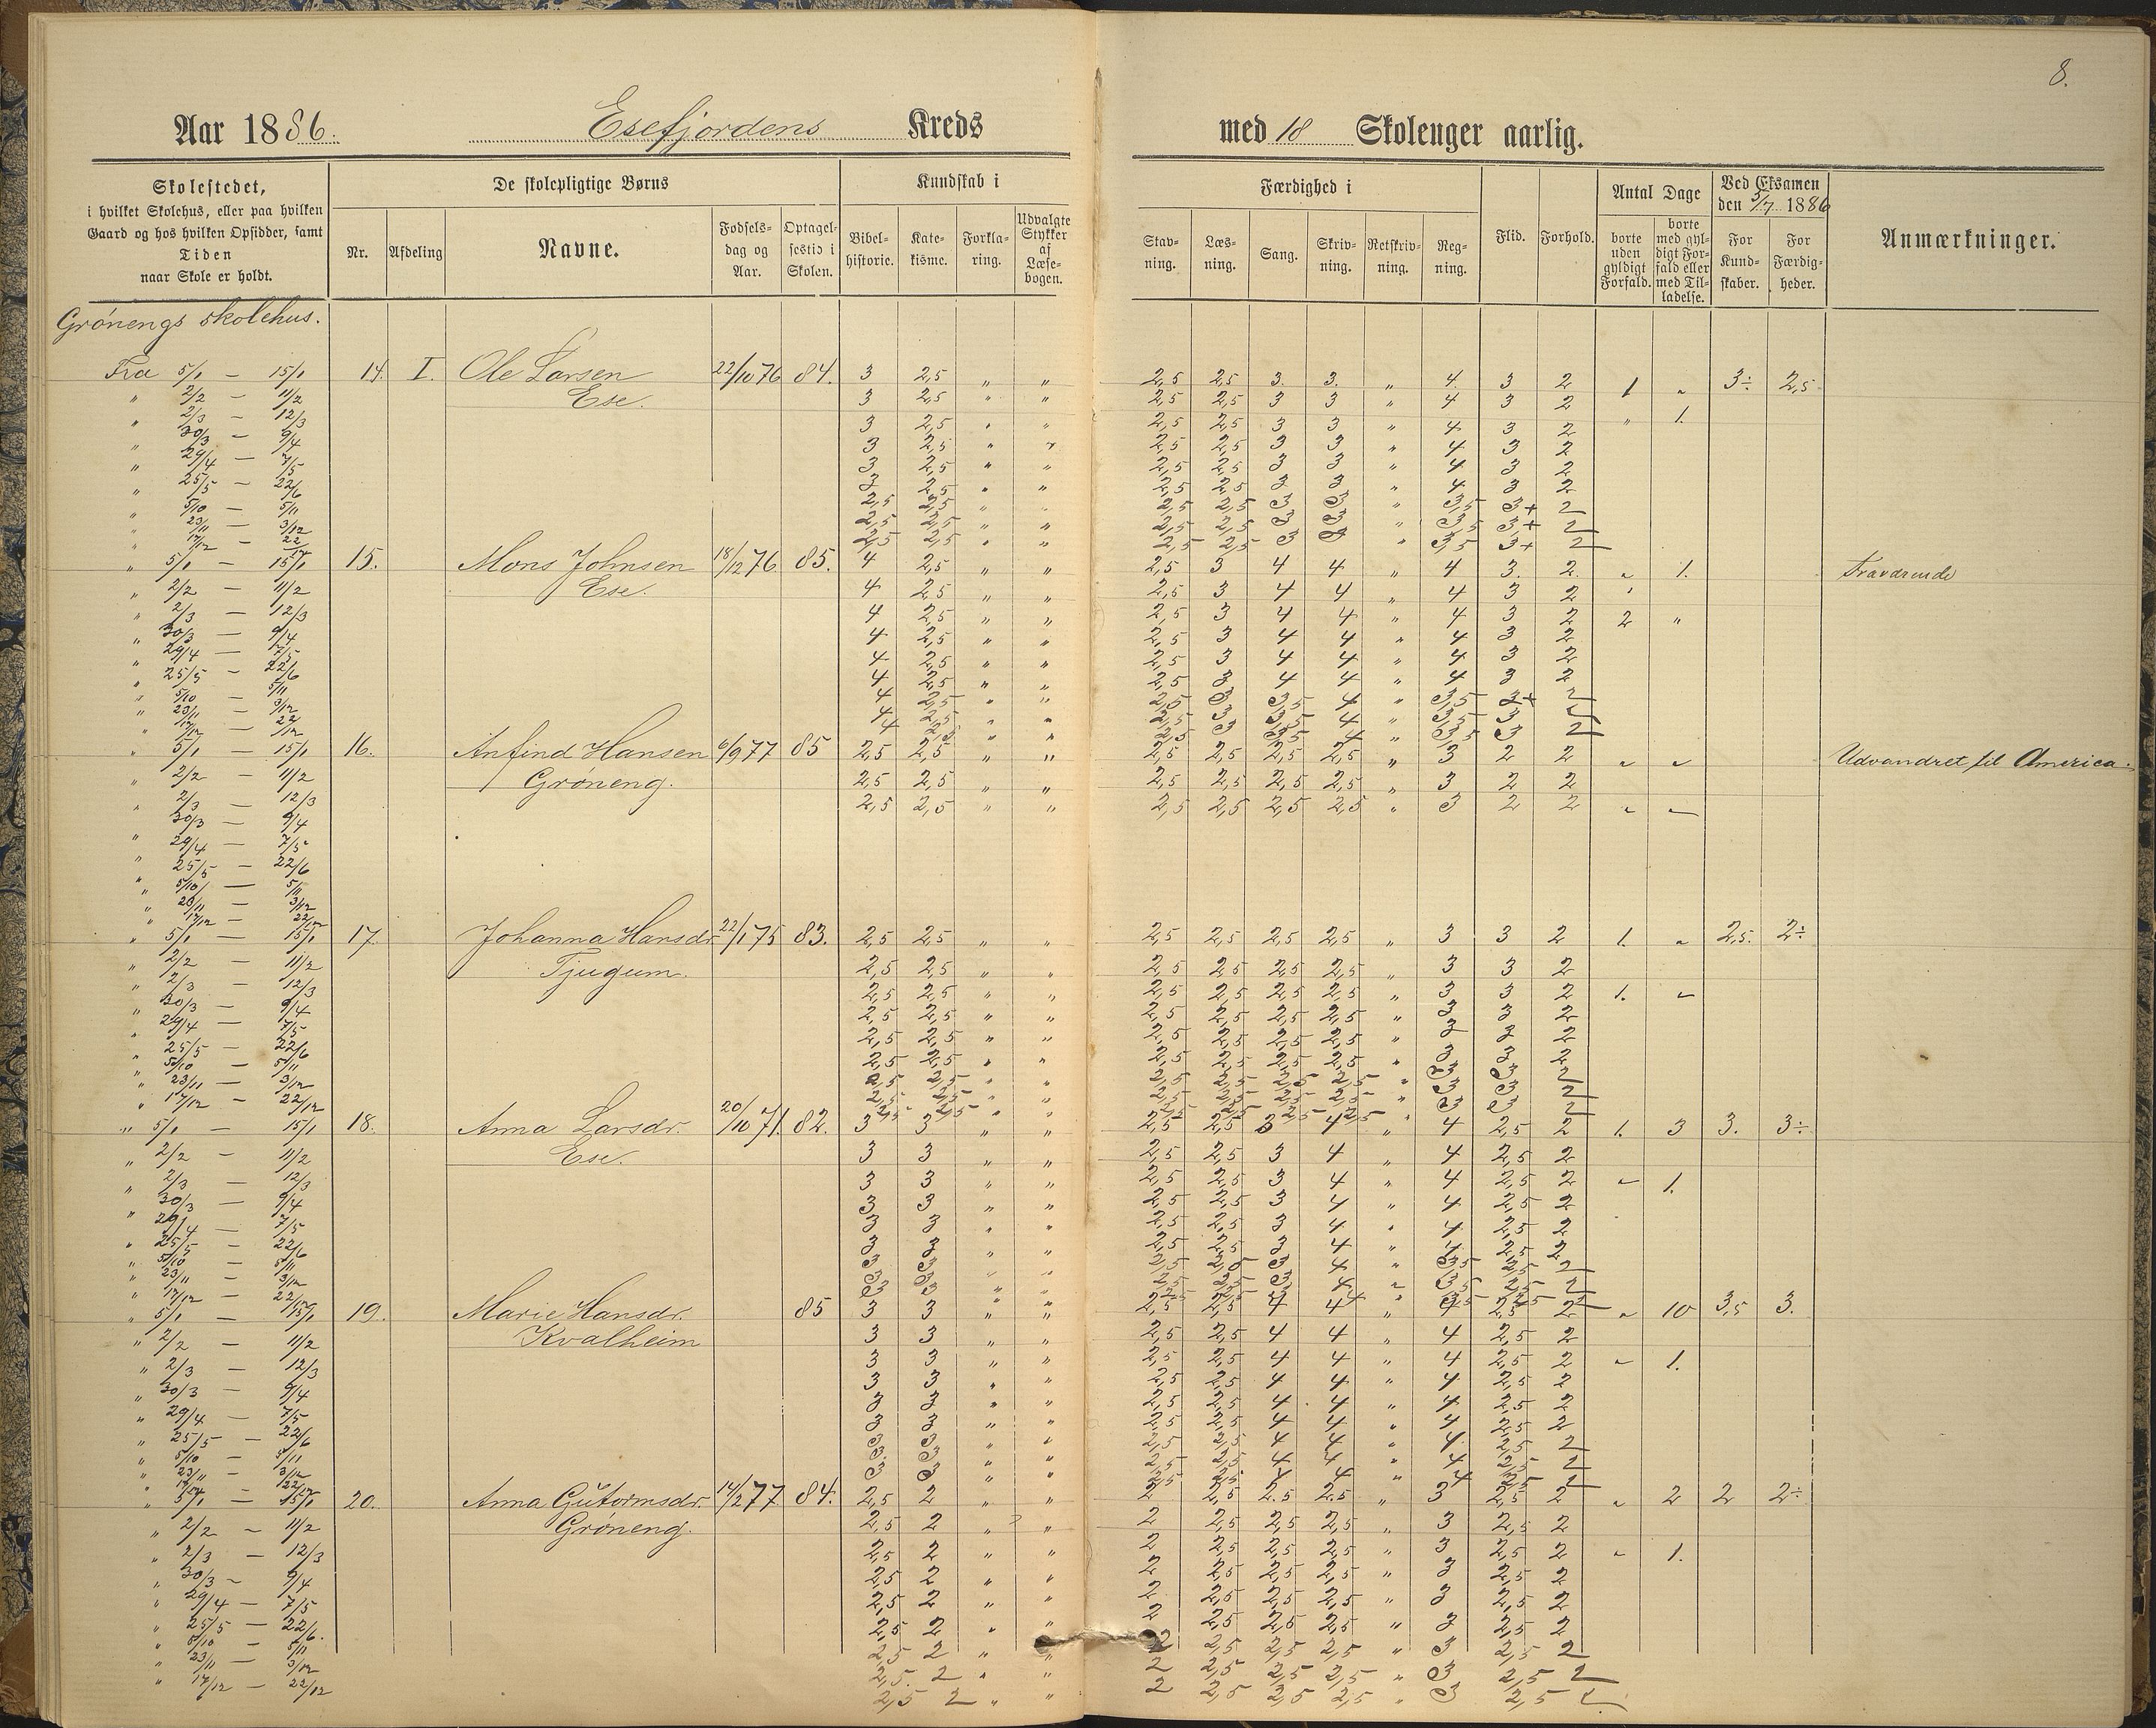 8.
Aar 1886. Esefjordens Kreds med 18 Skolenger aarlig.
Skolestedet, i hvilket Skolehus, eller paa hvilken Gaard og hos hvilken Opsidder, samt Tiden naar Skole er holdt.
De skolepligtige Børns
Nr. Afdeling Navne. Fødselsdag og Aar. Optagelsestid i Skolen.
Kundskab i
Bibelhistorie. Katekisme. Forklaring. Udvalgte Stykker af Læsebogen.
Færdighed i
Stavning. Læsning. Sang. Skrivning. Retskrivning. Regning.
Flid. Forhold.
Antal Dage
borte uden gyldigt Forfald. borte med gyldigt Forfald eller med Tilladelse.
Ved Eksamen den 5/7 1886
For Kundskaber. For Færdigheder.
Anmærkninger.
Grónengs skolehus.
Fra 5/1 — 15/1 14. I. Ole Larsen 22/10 76 84. 3 2,5 „ „ 2,5 2,5 3. 3. „ 4. 3 2 1 „ 3÷ 2,5
„ 2/2 — 11/2 Ese. 3 2,5 „ „ 2,5 2,5 3 3 „ 4 3 2
„ 2/3 — 12/3 3 2,5 „ „ 2,5 2,5 3 3 „ 4 3 2 „ 1.
„ 30/3 — 9/4 3 2,5 „ „ 2,5 2,5 3 3 „ 4 3 2
„ 29/4 — 7/5 3 2,5 „ „ 2,5 2,5 3 3 „ 4 3 2
„ 25/5 — 22/6 3 2,5 „ „ 2,5 2,5 3 3 „ 4 3 2
„ 5/10 — 5/11 2,5 2,5 „ „ 2,5 2,5 3 3 „ 3,5 3+ 2
„ 23/11 — 3/12 2,5 2,5 „ „ 2,5 2,5 3 3 „ 3,5 3+ 2
„ 17/12 — 22/12 2,5 2,5 „ „ 2,5 2,5 3 3 „ 3,5 3+ 2
„ 5/1 — 15/1 15. Mons Johnsen 18/12 76 85. 4 2,5 „ „ 2,5 3 4 4 „ 4 3. 2. „ 1. Fraværende
„ 2/2 — 11/2 Ese. 4 2,5 „ „ 2,5 3 4 4 „ 4 3 2
„ 2/3 — 12/3 4 2,5 „ „ 2,5 3 4 4 „ 4 3 2 2 „
„ 30/3 — 9/4 4 2,5 „ „ 2,5 3 4 4 „ 4 3 2
„ 29/4 — 7/5 4 2,5 „ „ 2,5 3 4 4 „ 4 3 2
„ 25/5 — 22/6 4 2,5 „ „ 2,5 3 4 4 „ 4 3 2
„ 5/10 — 5/11 4 2,5 „ „ 2,5 3 3,5 4 „ 3,5 3+ 2
„ 23/11 — 3/12 4 2,5 „ „ 2,5 3 3,5 4 „ 3,5 3 2
„ 17/12 — 22/12 4 2,5 „ „ 2,5 3 3,5 4 „ 3,5 3 2
„ 5/1 — 15/1 16. Anfind Hansen 6/9 77 85 2,5 2,5 „ „ 2,5 2,5 2,5 2,5 „ 3 2 2 „ „ Udvandret til America.
„ 2/2 — 11/2 Gróneng. 2,5 2,5 „ „ 2,5 2,5 2,5 2,5 „ 3 2 2
„ 2/3 — 12/3 2,5 2,5 „ „ 2,5 2,5 2,5 2,5 „ 3 2 2 „ „
„ 30/3 — 9/4
„ 29/4 — 7/5
„ 25/5 — 22/6
„ 5/10 — 5/11
„ 23/11 — 3/12
„ 17/12 — 22/12
„ 5/1 — 15/1 17. Johanna Hansdr. 22/1 75 83. 2,5 2,5 „ „ 2,5 2,5 2,5 2,5 „ 3 3 2 1. „ 2,5. 2÷
„ 2/2 — 11/2 Tjugum. 2,5 2,5 „ „ 2,5 2,5 2,5 2,5 „ 3 3 2
„ 2/3 — 12/3 2,5 2,5 „ „ 2,5 2,5 2,5 2,5 „ 3 3 2 1. „
„ 30/3 — 9/4 2,5 2,5 „ „ 2,5 2,5 2,5 2,5 „ 3 3 2
„ 29/4 — 7/5 2,5 2,5 „ „ 2,5 2,5 2,5 2,5 „ 3 3 2
„ 25/5 — 22/6 2,5 2,5 „ „ 2,5 2,5 2,5 2,5 „ 3 3 2
„ 5/10 — 5/11 2,5 2,5 „ „ 2,5 2,5 2,5 2,5 „ 3 3 2
„ 23/11 — 3/12 2,5 2,5 „ „ 2,5 2,5 2,5 2,5 „ 3 3 2
„ 17/12 — 22/12 2,5 2,5 „ „ 2,5 2,5 2,5 2,5 „ 3 3 2
„ 5/1 — 15/1 18. Anna Larsdr. 20/10 71. 82. 3 3 „ „ 2,5 2,5 3 4 „ 4 2,5 2 1. 3 3. 3÷
„ 2/2 — 11/2 Ese. 3 3 „ „ 2,5 2,5 3 4 „ 4 2,5 2
„ 2/3 — 12/3 3 3 „ „ 2,5 2,5 3 4 „ 4 2,5 2 „ 1.
„ 30/3 — 9/4 3 3 „ „ 2,5 2,5 3 4 „ 4 2,5 2
„ 29/4 — 7/5 3 3 „ „ 2,5 2,5 3 4 „ 4 2,5 2
„ 25/5 — 22/6 3 3 „ „ 2,5 2,5 3 4 „ 4 2,5 2
„ 5/10 — 5/11 3 3 „ „ 2,5 2,5 3 4 „ 3,5 2,5 2
„ 23/11 — 3/12 3 3 „ „ 2,5 2,5 3 4 „ 3,5 2,5 2
„ 17/12 — 22/12 3 3 „ „ 2,5 4 „ 3,5 2,5 2
„ 5/1 — 15/1 19. Marie Hansdr. 85 3 3 „ „ 2,5 2,5 4 4 „ 4 2,5 2 „ 10 3,5 3.
„ 2/2 — 11/2 Kvalheim 3 3 „ „ 2,5 2,5 4 4 „ 4 2,5 2
„ 2/3 — 12/3 3 3 „ „ 2,5 2,5 4 4 „ 4 2,5 2 „ 1.
„ 30/3 — 9/4 3 3 „ „ 2,5 2,5 4 4 „ 4 2,5 2
„ 29/4 — 7/5 3 3 „ „ 2,5 2,5 4 4 „ 4 2,5 2
„ 25/5 — 22/6 3 3 „ „ 2,5 2,5 4 4 „ 4 2,5 2
„ 5/10 — 5/11 3 3 „ „ 2,5 2,5 4 4 „ 4 2,5 2
„ 23/11 — 3/12 3 3 „ „ 2,5 2,5 4 4 „ 4 2,5 2
„ 17/12 — 22/12 3 3 „ „ 2,5 2,5 4 4 „ 4 2,5 2
„ 5/1 — 15/1 20. Anna Gutormsdr. 14/2 77 84. 2,5 2 „ „ 2 2,5 2,5 2,5 „ 3 2,5 2 „ 2 2 2÷
„ 2/2 — 11/2 Gróneng. 2,5 2 „ ? „ 2 2,5 2,5 2,5 „ 3 2,5 2
„ 2/3 — 12/3 2,5 2 „ „ 2 2,5 2,5 2,5 „ 3 2,5 2 „ 1.
„ 30/3 — 9/4 2,5 2 „ „ 2 2,5 2,5 2,5 „ 3 2,5 2
„ 29/4 — 7/5 2,5 2 „ „ 2 2,5 2,5 2,5 „ 3 2,5 2
„ 25/5 — 22/6. 2,5 2 „ „ 2 2,5 2,5 2,5 „ 3 2,5 2
„ 5/10 — 5/11 2,5 2 „ „ 2 2,5 2,5 2,5 „ 3 2,5 2
„ 23/11 — 3/12 2,5. 2 „ „ 2 2,5 2,5 2,5 „ 3 2,5 2
„ 17/12 — 22/12 2,5 2 „ „ 2 2,5 2,5 2,5 „ 3 2,5 2